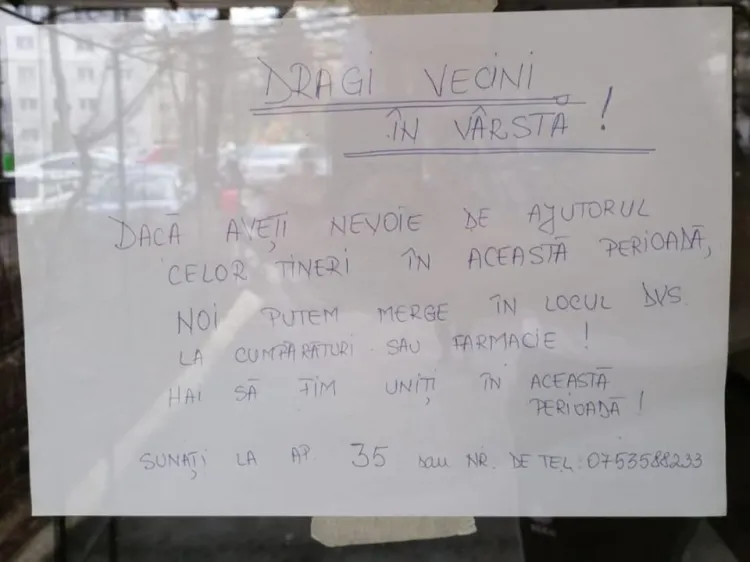 DRAGI VECINI
ÎN VÂRSTĂ !
DACĂ AVEȚI NEVOIE DE AJUTORUL
CELOR TINERI ÎN ACEASTĂ PERIOADĂ,
NOI PUTEM MERGE ÎN LOCUL DVS.
LA CUMPĂRĂTURI SAU FARMACIE !
HAI SĂ FIM UNIȚI ÎN ACEASTĂ
PERIOADĂ !
SUNAȚI LA AP. 35 sau NR. DE TEL: 0753588233